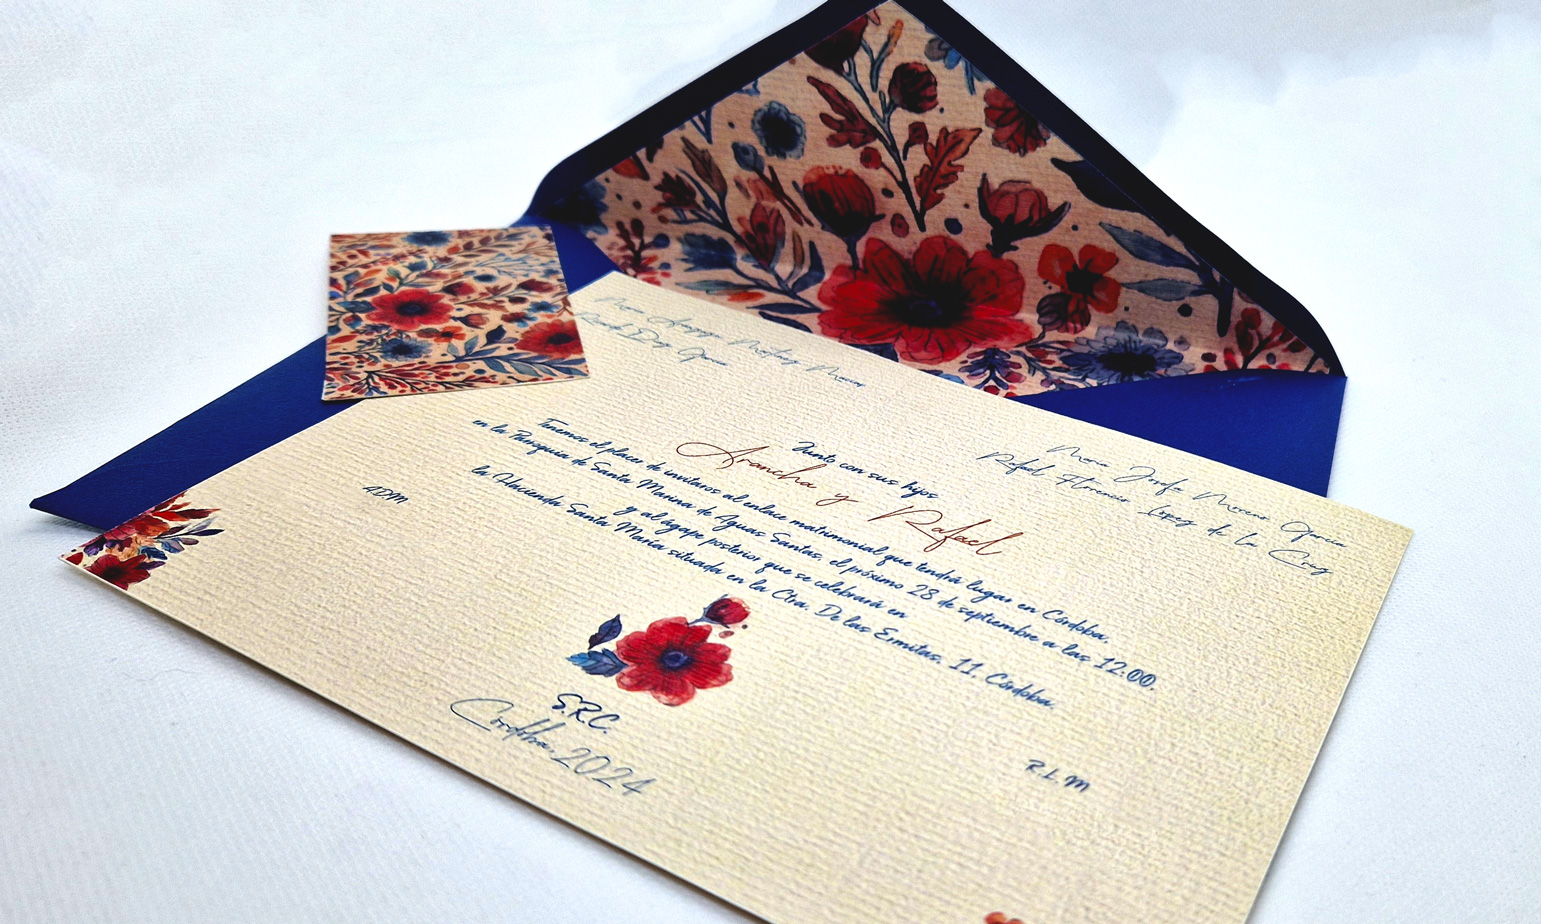 García
María Josefa Moreno García
Rafael Florencio López de la Cruz
Junto con sus hijos
Arancha y Rafael
Tenemos el placer de invitaros al enlace matrimonial que tendrá lugar en Córdoba,
en la Parroquia de Santa Marina de Aguas Santas, el próximo 28 de septiembre a las 12:00.
y al ágape posterior que se celebrará en
la Hacienda Santa María situada en la Ctra. De las Ermitas, 11, Córdoba.
S.R.C.
Córdoba, 2024
R.L.M